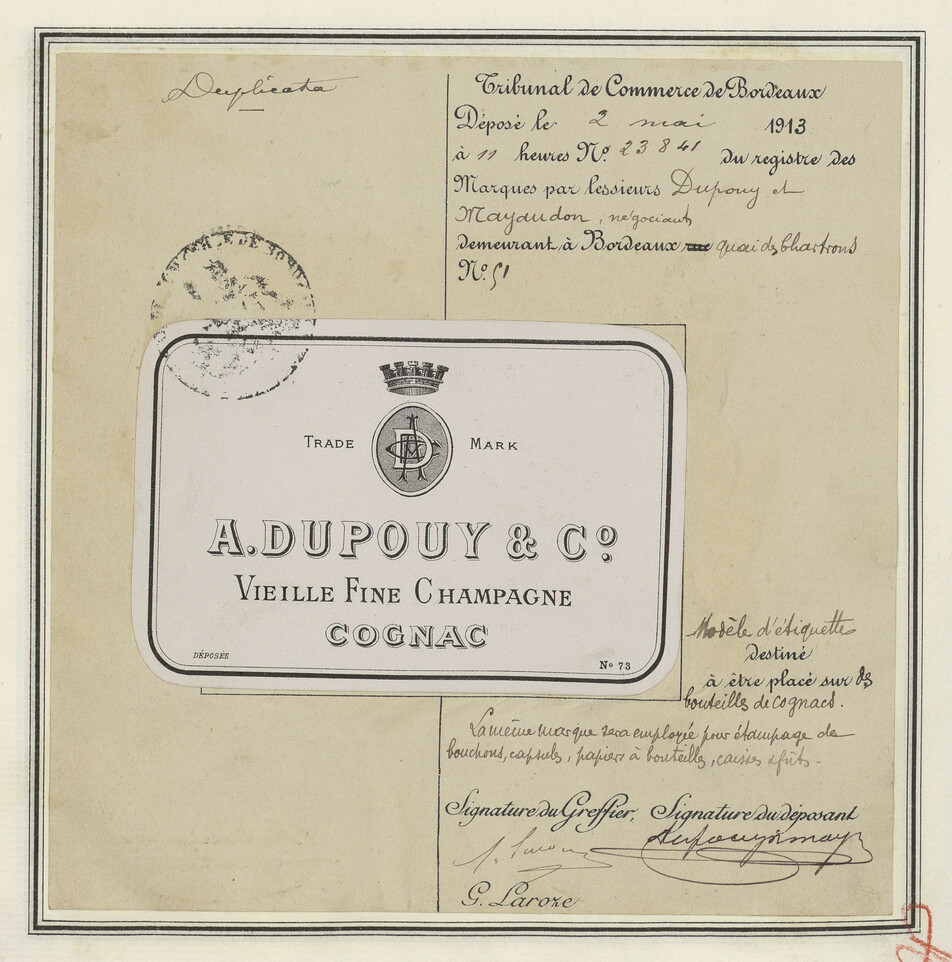 Duplicata
Tribunal de Commerce de Bordeaux
Déposé le 2 mai 1913
à 11 heures No. 23841 du registre des
Marques par lessieurs Dupouy et
Mayaudon, négociants
demeurant à Bordeaux rue quai des Chartrons
No. 51
TRADE MARK
A. DUPOUY & Co.
VIEILLE FINE CHAMPAGNE
COGNAC
DÉPOSÉE
No 73
Modèle d'étiquette
destiné
à être placé sur des
bouteilles de cognacs.
La même marque sera employée pour étampage de
bouchons, capsules, papiers à bouteilles, caisses & fûts.
Signature du Greffier, Signature du déposant
G. Laroze